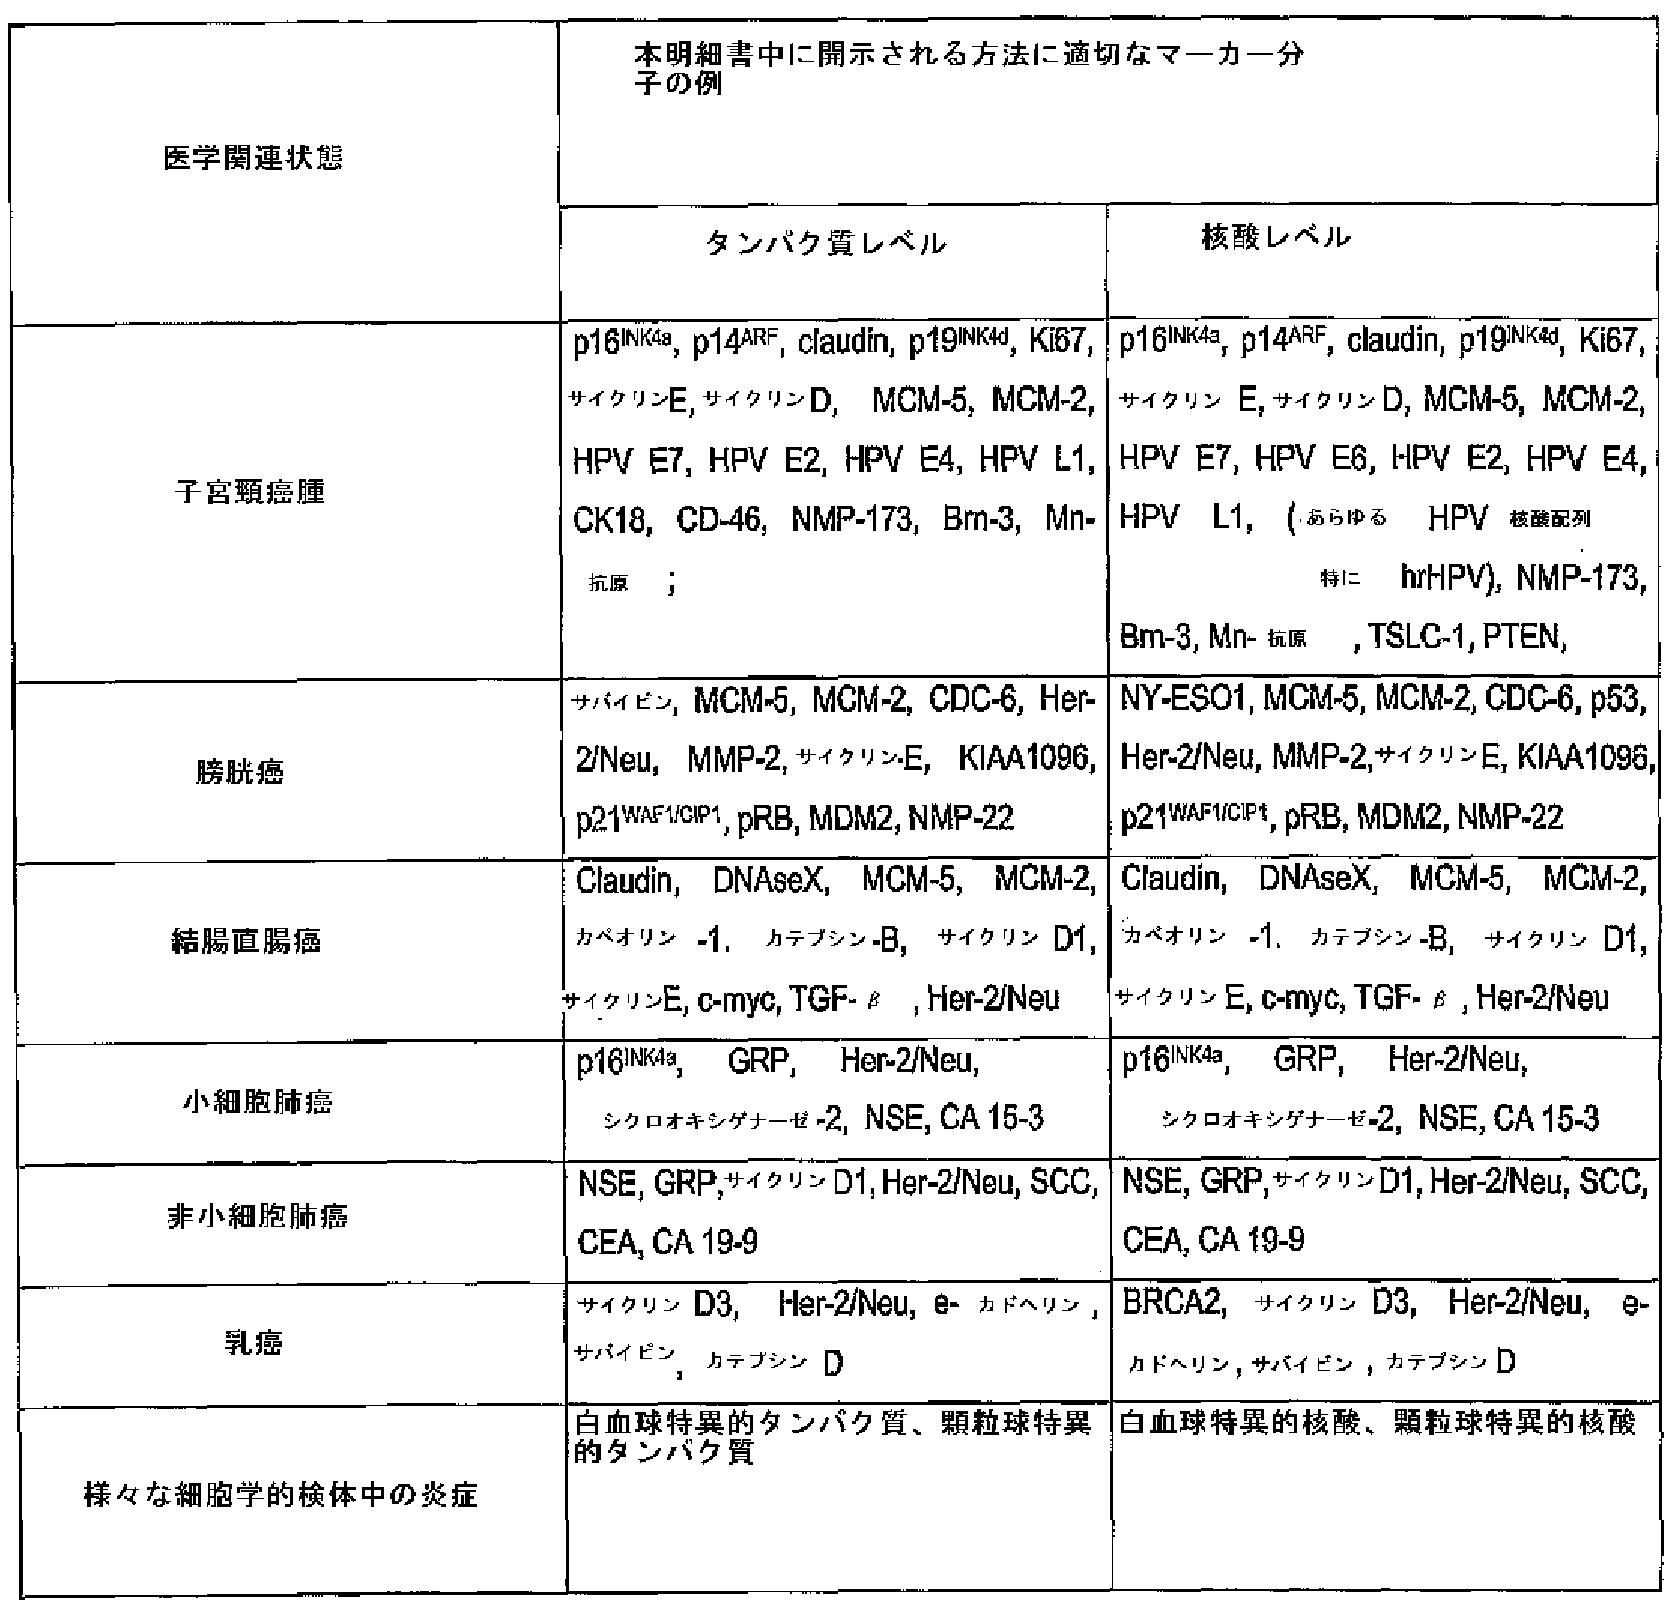 本明細書中に開示される方法に適切なマーカー分
子の例
医学関連状態
タンパク質レベル
核酸レベル
p16INK4a, p14ARF, claudin, p19INK4d, Ki67,
サイクリンE, サイクリンD, MCM-5, MCM-2,
HPV E7, HPV E2, HPV E4, HPV L1,
CK18, CD-46, NMP-173, Brn-3, Mn-
抗原 ;
p16INK4a, p14ARF, claudin, p19INK4d, Ki67,
サイクリン E, サイクリン D, MCM-5, MCM-2,
HPV E7, HPV E6, HPV E2, HPV E4,
HPV L1, (あらゆる HPV 核酸配列
特に hrHPV), NMP-173,
Brn-3, Mn- 抗原 , TSLC-1, PTEN,
子宮頸癌腫
膀胱癌
サバイビン, MCM-5, MCM-2, CDC-6, Her-
2/Neu, MMP-2, サイクリン-E, KIAA1096,
p21WAF1/CIP1, pRB, MDM2, NMP-22
NY-ESO1, MCM-5, MCM-2, CDC-6, p53,
Her-2/Neu, MMP-2, サイクリンE, KIAA1096,
p21WAF1/CIP1, pRB, MDM2, NMP-22
結腸直腸癌
Claudin, DNAseX, MCM-5, MCM-2,
カベオリン -1. カテプシン-B, サイクリン D1,
サイクリンE, c-myc, TGF- β , Her-2/Neu
Claudin, DNAseX, MCM-5, MCM-2,
カベオリン -1. カテプシン-B, サイクリン D1,
サイクリン E, c-myc, TGF- β , Her-2/Neu
小細胞肺癌
p16INK4a, GRP, Her-2/Neu,
シクロオキシゲナーゼ-2, NSE, CA 15-3
p16INK4a, GRP, Her-2/Neu,
シクロオキシゲナーゼ-2, NSE, CA 15-3
非小細胞肺癌
NSE, GRP, サイクリン D1, Her-2/Neu, SCC,
CEA, CA 19-9
NSE, GRP, サイクリン D1, Her-2/Neu, SCC,
CEA, CA 19-9
乳癌
サイクリン D3, Her-2/Neu, e- カドヘリン ,
サバイビン, カテプシン D
BRCA2, サイクリン D3, Her-2/Neu, e-
カドヘリン , サバイビン , カテプシン D
様々な細胞学的検体中の炎症
白血球特異的タンパク質、顆粒球特異
的タンパク質
白血球特異的核酸、顆粒球特異的核酸